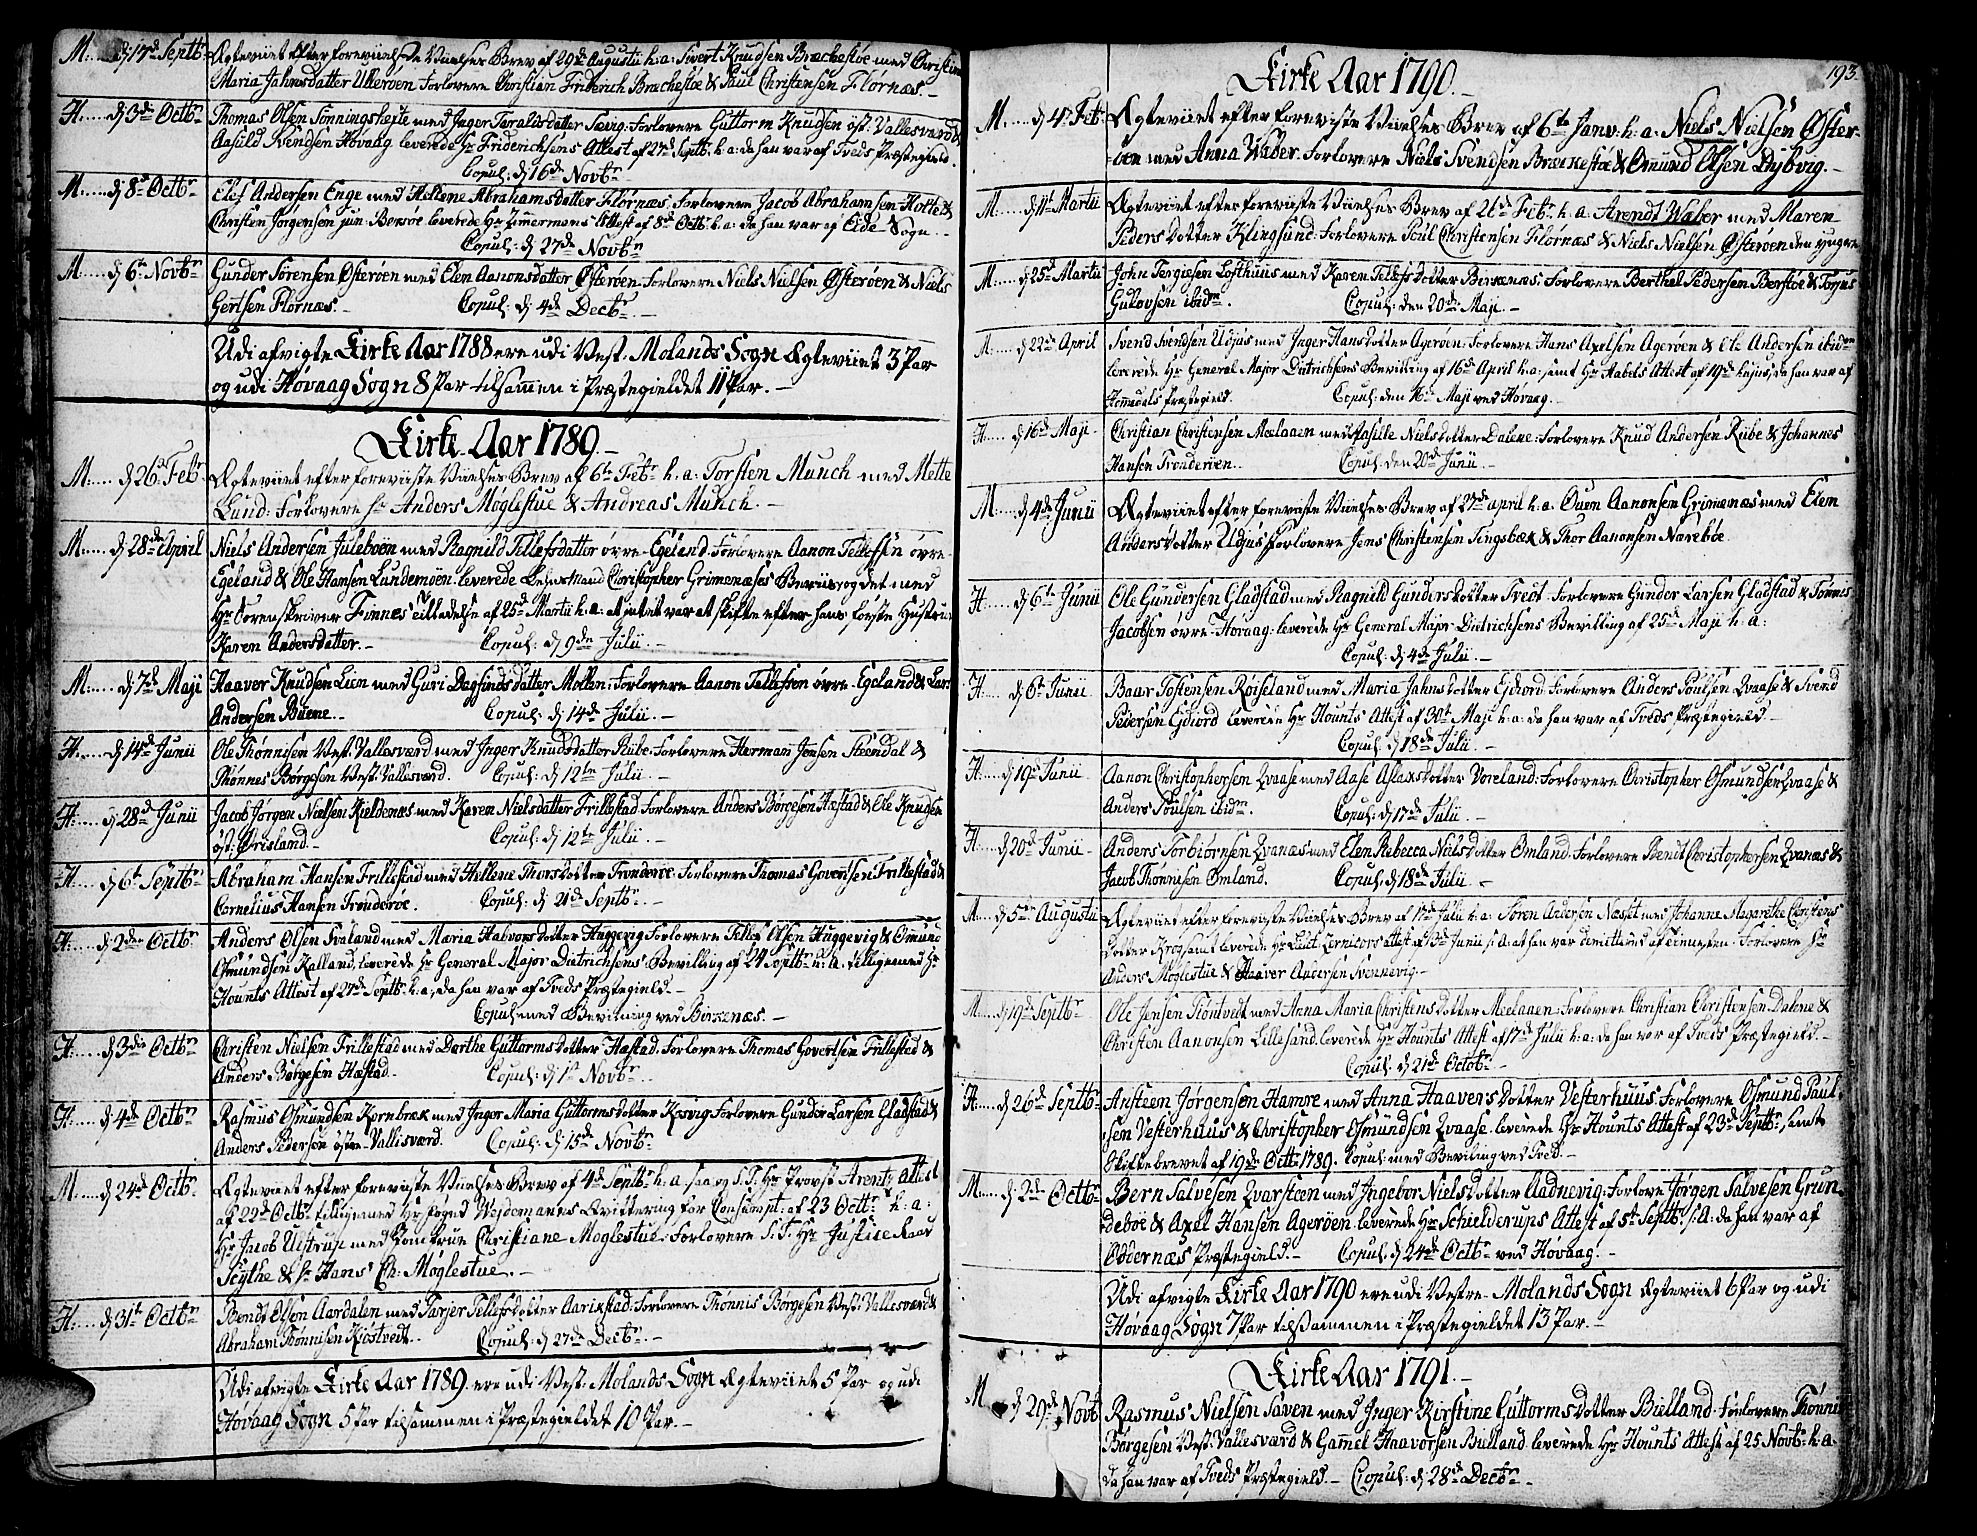 M. d 17d Septbr Ægteviiet efter foreviiste Viielses Brev af 29de Augustii h:a: Sivert Knudsen Brechestøe med Christine
Maria Jahnsdatter Ulleröen Forlovere Christian Friderich Brechestøe & Paul Christensen Flörnæs.
H. d 3de Octbr Thomas Olsen Sönningshefte med Inger Taraldsdatter Sævig: Forlovere Guttorm Knudsen öst: Vallesværd &
Aasild Svendsen Hövaag leverede Hr Friderichsens Attest af 27de Septbr h:a: da han var af Tveds Præstegield.
Copul: d 16de Novbr
M. d 8de Octbr Elef Andersen Enge med Hellene Abrahamsdatter Flörnæs: Forlovere Jacob Abrahamsen Holte &
Christen Jörgensen jun: leverede Hr Zimermans Attest af 8de Octbr h:a: da han var af Eide Sogn.
Copul: d 27de Novbr
M. d 6te Novbr Gunder Sörensen Österöen med Elen Aanonsdatter Österöen: Forlovere Niels Nielsen Österöen & Niels
Gertsen Flörnæs. Copul: d 4de Decbr
Udi afvigte Kirke Aar 1788 ere udi Vest. Molands Sogn Ægteviiet 3 Par
og udi Hövaag Sogn 8 Par tilsammen i Præstegieldet 11 Par.
Kirke Aar 1789.
M. d 26de Febr Ægteviiet efter foreviiste Viielses Brev af 6te Febr h:a: Torsten Munch med Mette
Lund: Forlovere Sr Anders Möglestue & Andreas Munch.
M. d 28de April Niels Andersen Juleboen med Ragnild Tellefsdatter övre Egeland: Forlovere Aanon Tellefsen övre
Egeland & Ole Hansen Lundemoen: leverede Lehnsmand Christopher Grimenæses Beviis og det med
Hr Sorenskriver Finnes tilladelse af 25de Martii h:a: at intet var at skifte efter hans første Hustrue
Karen Andersdatter. Copul: d 9de Julii.
M. d 7de Maji Haaver Knudsen Liem med Guri Dagfindsdatter Mollen: Forlovere Aanon Tellefsen övre Egeland & Lars
Andersen Buene. Copul: d 14de Julii.
H. d 14de Junii Ole Thönnisen Vest: Vallesværd med Inger Knudsdatter Ribe: Forlovere Herman Jensen Steendal &
Thönnes Börgesen Vest: Vallesværd. Copul: d 12te Julii.
H. d 28de Junii Jacob Jörgen Nielsen Kieldenæs med Karen Nielsdatter Frillestad: Forlovere Anders Börgesen Hæstad & Ole Knudsen
öst: Örisland. Copul: d 12te Julii
H. d 6te Septbr Abraham Hansen Frillestad med Hellene Thorsdotter Tronderöe: Forlovere Thomas Govertsen Frillestad &
Cornelius Hansen Tronderöe. Copul: d 21de Septbr.
H. d 2den Octbr Anders Olsen Svaland med Maria Halvorsdotter Huggevig: Forlovere Tellef Olsen Huggevig & Omund
Osmundsen Kalland, leverede Hr General Major Dietrichsens Bevilling af 24 Septbr h:a: tilligemed Hr
Hounts Attest af 27de Septbr h:a: da han var af Tveds Præstegield.
Copul: med Bevilning ved Birkenæs.
H. d 3die Octbr Christen Nielsen Frillestad med Dorthe Guttormsdotter Hæstad: Forlovere Thomas Govertsen Frillestad &
Anders Börgesen Hæstad. Copul: d 1te Novbr
H. d 4de Octbr Rasmus Osmundsen Kornbrek med Inger Maria Guttormsdotter Kosvig: Forlovere Gunder Larsen Gladstad &
Anders Pedersen östre Vallisværd. Copul: d 15de Novbr
M. d 24de Octbr Ægteviiet efter foreviiste Viielses Brev af 4de Septbr h:a: saa og S.T. Hr Provst Arentz attest
af 22de Octbr tilligemed Hr foged Weidemanns Qvittering for Consumpt: af 23 Octbr h:a:
Hr Jacob Ulstrup med Jomfrue Christiane Moglestue: Forlovere S.T. Hr Justice Raad
Scythe & Sr Hans Ch: Möglestue.
H. d 31te Octbr Bendt Olsen Aardalen med Tarjer Tellefsdotter Aarikstad: Forlovere Thönnis Börgesen Vest: Vallesværd &
Abraham Thönnisen Kjöstvedt. Copul: d 27de Decbr.
Udi afvigte Kirke Aar 1789 ere udi Vest: Molands Sogn Ægteviiet 5 Par og udi
Hövaag Sogn 5 Par tilsammen i Præstegieldet 10 Par.
193.
Kirke Aar 1790.
M. d 4de Febr Ægteviiet efter foreviste Viielses Brev af 6te Janv: h:a: Niels Nielsen Öster-
öen med Anna Waber. Forlovere Niels Svendsen Brækkestöe & Omund Olsen Dybvig.
M. d 11te Martii Ægteviiet efter foreviiste Viielses Brev af 26de Febr h:a: Arendt Waber med Maren
Pedersdotter Klingsund: Forlovere Poul Christensen Flörnæs & Niels Nielsen Österöen den yngre
M. d 25de Martii John Tergiesen Lofthuus med Karen Tellefsdotter Birkenæs: Forlovere Berthel Pedersen Berstöe & Torjus
Gulovsen ibidm. Copul: den 20de Maji.
M. d 22de April Svend Svendsen Udjus med Inger Hansdotter Ageröen: Forlovere Hans Axelsen Ageröen & Ole Andersen ibidm
leverede Hr General Major Dietrichsens Bevilling af 16de April h:a: samt Hr Habels Attest af 19de hujus, da han var af
Hommedals Præstegield. Copul: den 16de Maji ved Hövaag.
H. d 16de Maji Christian Christensen Meelaaen med Pasille Nielsdotter Dalene: Forlovere Knud Andersen Riibe & Johannes
Hansen Tronderöen. Copul: den 20de Junii.
M. d 4de Junii Ægteviiet efter foreviste Viielses Brev af 27de april h:a: Ouen Aanonsen Grimenæs med Elen
Andersdotter Udjus Forlovere Jens Christensen Tingsbæk & Thor Aanonsen Nareböe.
H. d 6te Junii Ole Gundersen Gladstad med Ragnild Gundersdotter Tvedt: Forlovere Gunder Larsen Gladstad & Tönnis
Jacobsen övre Hövaag: leverede Hr General Major Dietrichsens Bevilling af 25de Maji h:a:
Copul: d 4de Julii.
H. d 6te Junii Baar Tostensen Röiseland med Maria Jahnsdotter Eidjord: Forlovere Anders Poulsen Qvaase & Svend
Pedersen Eidjord leverede Hr Hounts Attest af 30te Maji h:a: da han var af Tveds Præstegield.
Copul: d 18de Julii.
H. d 19de Junii Aanon Christophersen Qvaase med Aase Aslaksdotter Voreland: Forlovere Christopher Osmundsen Qvaase &
Anders Poulsen ibidm. Copul: d 17de Julii
H. d 20de Junii Anders Torbiörnsen Qvanæs med Elen Rebecca Nielsdotter Omland: Forlovere Bendt Christophersen Qvanæs &
Jacob Thönnisen Omland. Copul: d 18de Julii.
M. d 5te Augusti Ægteviiet efter foreviste Viielses Brev af 17de Julii h:a: Sören Andersen Næset med Johanne Magarethe Christens
dotter Krog samt leverede Hr Lieut: attest af 13de Junii s.A. at han var dimitteret af tienesten: Forlovere Sr
Anders Möglestue & Haaver Andersen Svennevig.
M. d 19de Septbr Ole Jensen Tiöntvedt med Anna Maria Christensdotter Meelaaen: Forlovere Christian Christensen Dalene &
Christen Aanonsen Lillesand leverede Hr Hounts Attest af 17de Julii h:a: da han var af Tveds Præstegield.
Copul: d 21de Octob:
H. d 26de Septbr Ansteen Jörgensen Hamre med Anna Haaversdotter Vesterhuus: Forlovere Osmund Paul-
sen Vesterhuus & Christopher Osmundsen Qvaase leverede Hr Hounts Attest af 23de Septbr, samt
Skiftebrevet af 19de Octbr 1789. Copul: med Bevilling ved Tved.
M. d 2de Octbr Bern Salvesen Qvarsteen med Ingebor Nielsdotter Aadnevig: Forlovere Jörgen Salvesen Grun-
deböe & Axel Hansen Ageröen: leverede Hr Schielderups Attest af 5te Septbr s:A: da han var af
Oddernæs Præstegield. Copul: d 24de Octbr ved Hövaag.
Udi afvigte Kirke Aar 1790 ere udi Vestre Molands Sogn Ægteviiet 6 Par og udi
Hövaag Sogn 7 Par tilsammen i Præstegieldet 13 Par.
Kirke Aar 1791.
M d 29de Novbr Rasmus Nielsen Saven med Inger Kirstine Guttormsdotter Bielland: Forlovere Thönnis
Börgesen Vest: Vallesværd & Gammel Haavorsen Bielland leverede Hr Hounts Attest af 25 Novbr h:a:
da han var af Tveds Præstegield. Copul: d 28de Decbr